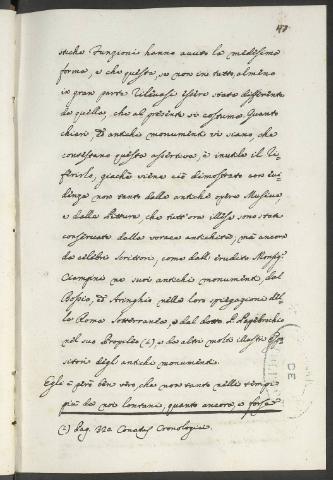 47
stiche Funzioni hanno avuto la medesima
forma, e che questa, se non in tutto, almeno
in gran parte rilevasi essere stata differente
da quella, che al presente si costuma. Quanti
chiari, ed antichi monumenti vi siano, che
contestano questa assertiva, è inutile il ri-
ferirlo, giachè viene ciò dimostrato con evi-
denza non tanto dalle antiche opere Musive,
e dalle Pitture che tutt'ora illese sono state
conservate dalla vorace antichità, mà ancora
da celebri Scrittori, come dall'erudito Monsig.r
Ciampini ne suoi antichi monumenti, dal
Bosio, ed Aringhio nelle loro spiegazioni del-
la Roma Sotterranea, e dal dotto P. Papebrochio
nel suo Propileo (1) e da altri molti illustri Espo-
sitori degli antichi monumenti.
Egli è però ben vero, che non tanto nelli tempi
più da noi lontani, quanto ancora, e forse
(1) Pag. 32a Conatus Cronologici.
DE